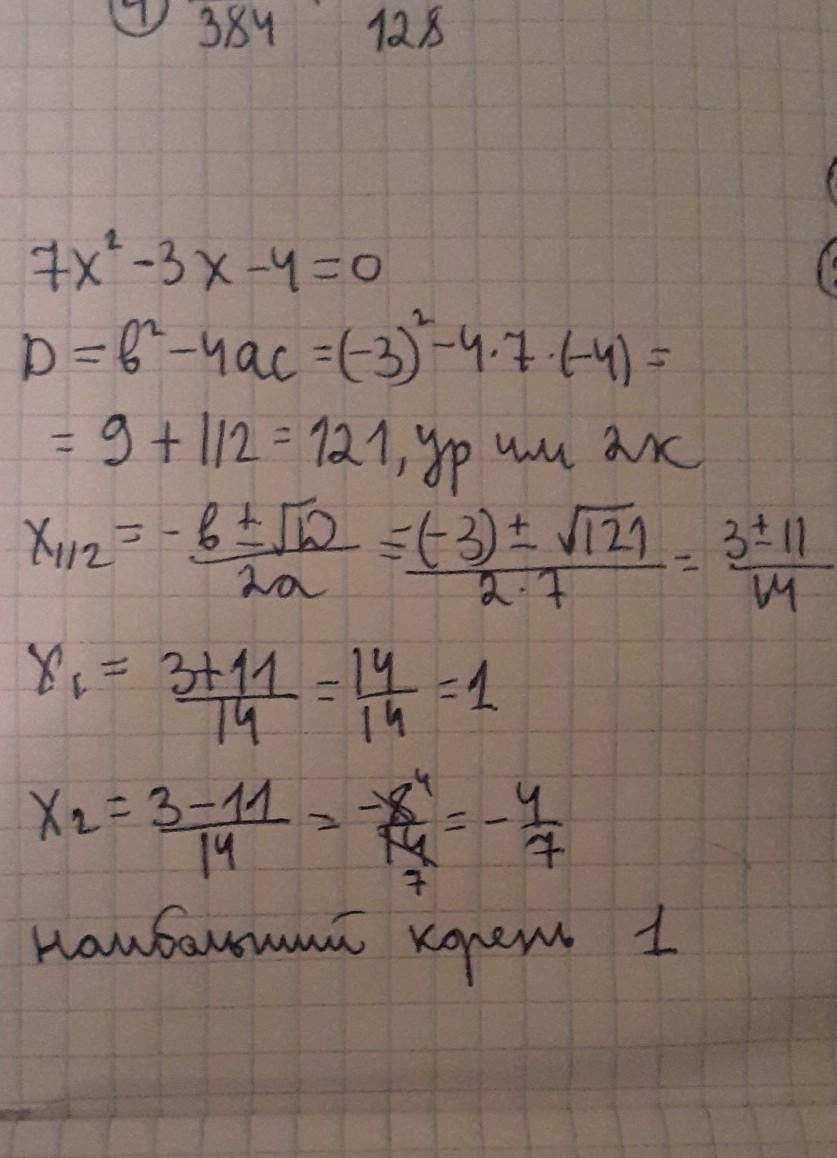 384 128
7x² - 3x - 4 = 0
D = b² - 4ac = (-3)² - 4·7·(-4) =
= 9 + 112 = 121, ур им 2к
x₁/₂ = -b ± √D / 2a = -(-3) ± √121 / 2·7 = 3 ± 11 / 14
x₁ = 3+11 / 14 = 14 / 14 = 1
x₂ = 3-11 / 14 = -8 4 / 14 7 = - 4 / 7
наибольший корень 1